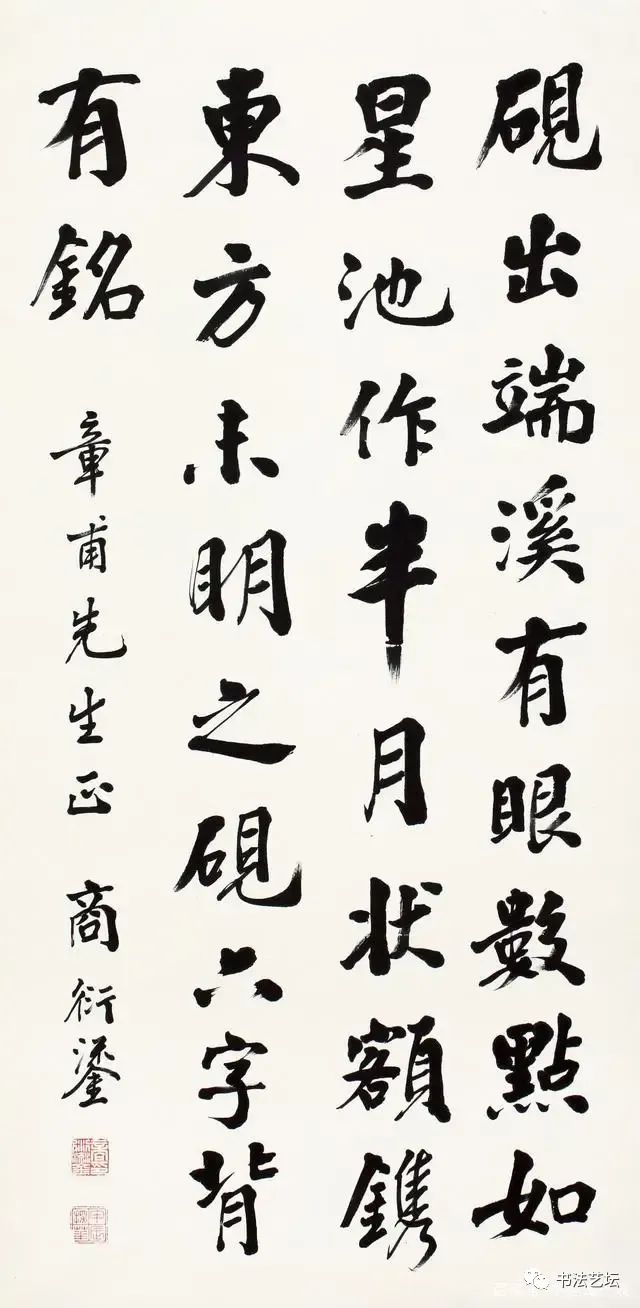 硯出端溪有眼數點如
星池作半月狀額鐫
東方未明之硯六字背
有銘
章甫先生正 商衍鎏
书法艺坛